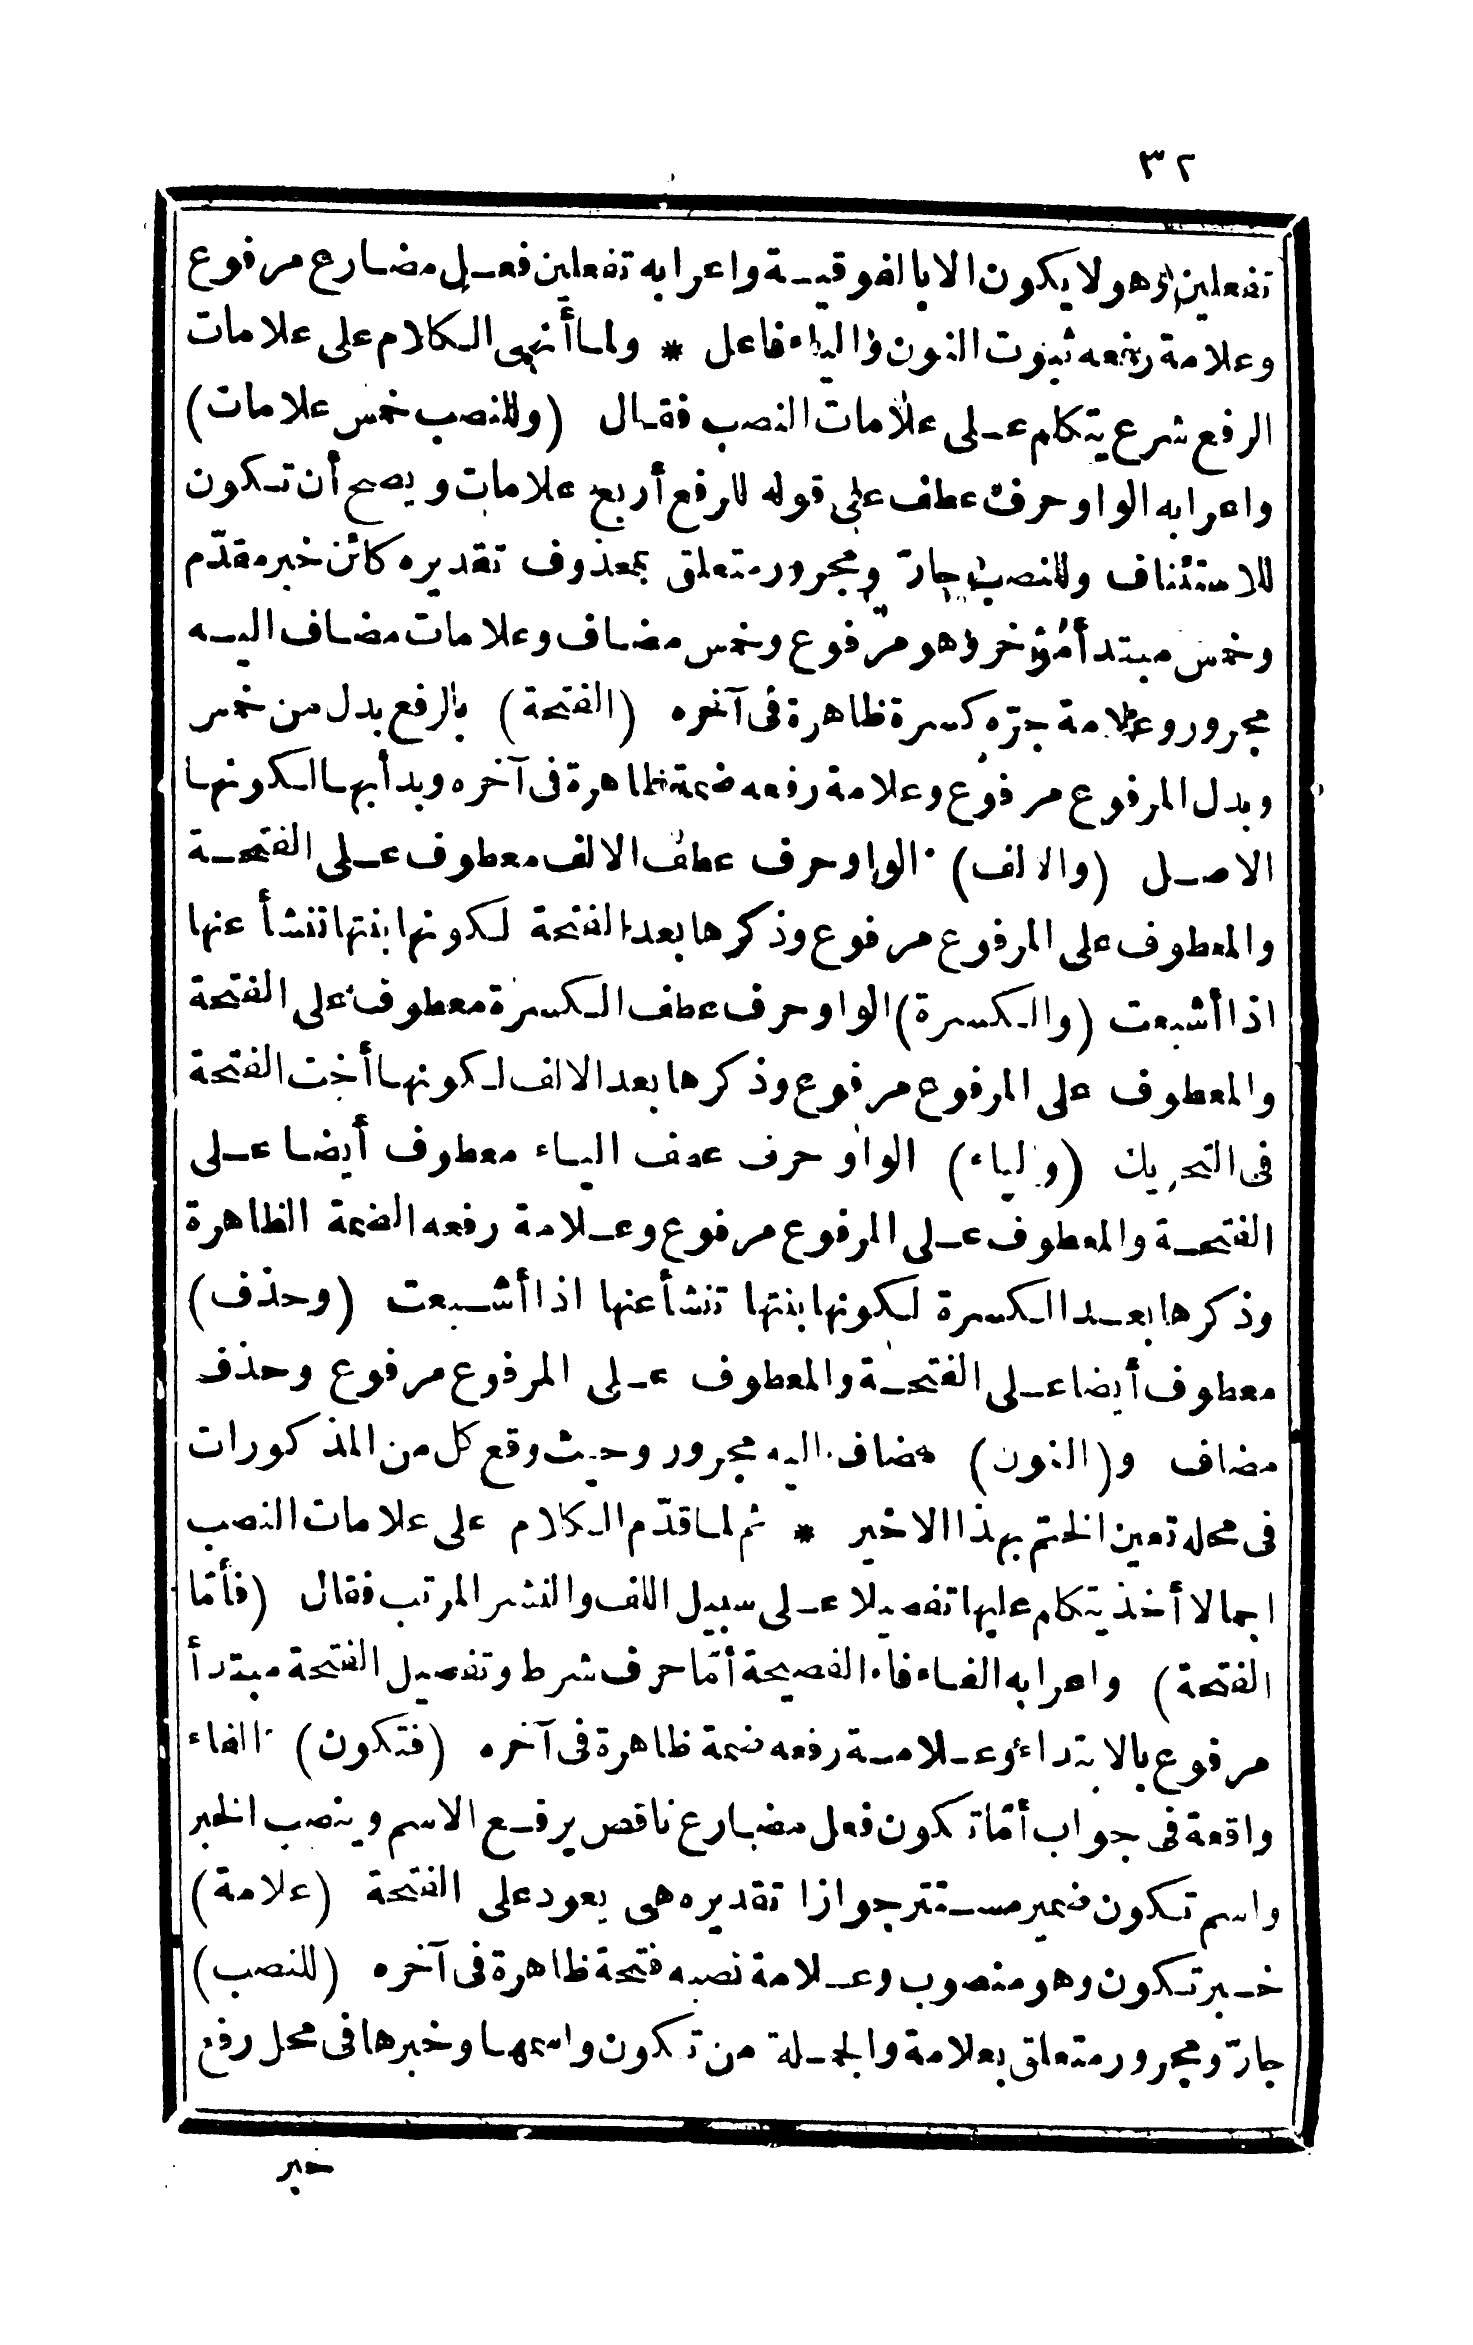 ٣٢
تفعلين وهو لا يكون الا بالفوقيـة واعرابه تفعلين فعـل مضـارع مرفوع
وعلامة رفعه ثبوت النون والياء فاعل * ولما أنهى الكلام على علامات
الرفع شرع يتكلم عـلى علامات النصب فقـال (وللنصب خمس علامات)
واعرابه الواو حرف عطف على قوله للرفع أربع علامات ويصح أن تـكون
للاستئناف وللنصب جارّ ومجرور متعلق بمحذوف تقديره كائن خبر مقدّم
وخمس مبتدأ مؤخر وهو مرفوع وخمس مضـاف وعلامات مضـاف اليـه
مجرور وعلامة جرّه كسرة ظاهرة فى آخره (الفتحة) بالرفع بدل من خمس
وبدل المرفوع مرفوع وعلامة رفعه ضمة ظاهرة فى آخره وبدأ بهـا لـكونهـا
الاصـل (والالف) الواو حرف عطف الالف معطوف عـلى الفتحـة
والمعطوف على المرفوع مرفوع وذكرها بعد الفتحة لـكونها بنتها تنشأ عنها
اذا أشبعت (والـكسرة) الواو حرف عطف الـكسرة معطوف على الفتحة
والمعطوف على المرفوع مرفوع وذكرها بعد الالف لـكونهـا أخت الفتحة
فى التحريك (والياء) الواو حرف عطف اليـاء معطوف أيضا عـلى
الفتحـة والمعطوف عـلى المرفوع مرفوع وعـلامة رفعه الضمة الظاهرة
وذكرها بعـد الـكسرة لـكونها بنتها تنشأ عنها اذا أشـبعت (وحذف)
معطوف أيضا عـلى الفتحـة والمعطوف عـلى المرفوع مرفوع وحذف
مضاف و(النون) مضاف اليه مجرور وحيث وقع كل من المذكورات
فى محله تعين الختم بهذا الاخير * ثم لمـا قدّم الـكلام على علامات النصب
اجمالا أخذ يتكلم عليها تفصيلا عـلى سبيل اللف والنشر المرتب فقال (فأمّا
الفتحة) واعرابه الفـاء فاء الفصيحة أمّا حرف شرط وتفصيل الفتحة مبتدأ
مرفوع بالابتداء وعـلامـة رفعه ضمة ظاهرة فى آخره (فتكون) الفاء
واقعة فى جواب أمّا تكون فعل مضـارع ناقص يرفـع الاسم وينصب الخبر
واسم تـكون ضمير مسـتتر جوازا تقديره هى يعود على الفتحة (علامة)
خـبر تـكون وهو منصوب وعـلامة نصبه فتحة ظاهرة فى آخره (للنصب)
جارّ ومجرور متعلق بعلامة والجـملة من تكون واسمهـا وخبرها فى محل رفع
خبر